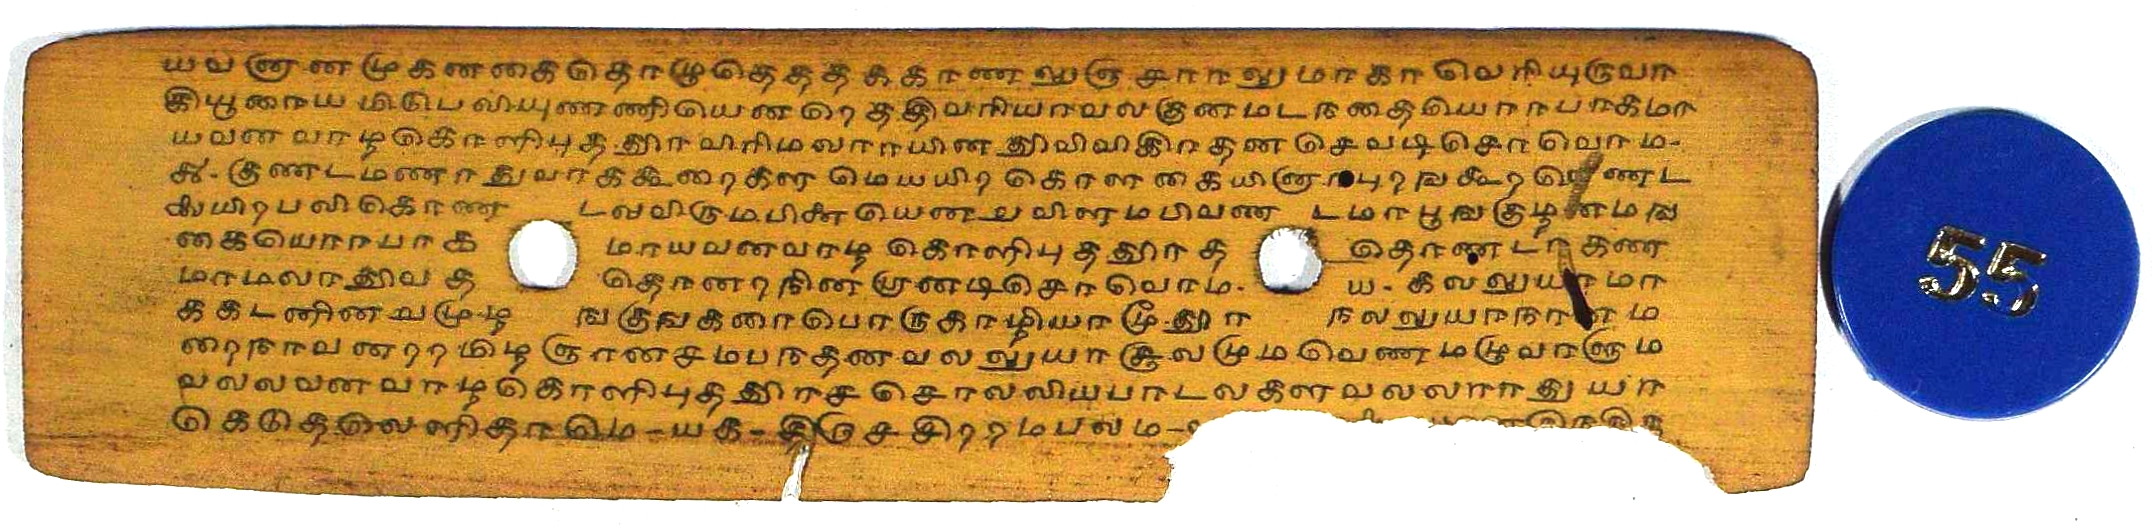 யவனானமுகனகைதொழுதெதததகாணலுஞசாரலுமாகாவெரியுருவா
கியூரையமிடுபெலியுணணியெனறெததிவரியரவலகுனமடநதையொரபாகமா
யவனவாழகொளிபுததூரவிரிமலராயினதூவிவிகிரதனசெவடிசெரவொம-
௯- குணடமணரதுவரககூறைகள மெயயிற கொளகையினாரபுறஙகூறவெணட
லையிறபலிகொண டலவிருமபினையெனறுவிளமபிவண டமரபூஙகுழனமங
கையொரபாக மாயவனவாழகொளிபுததூரத தொணடரகண
மாமலரதூவத தொனறிநினறானடிசெரவொம- ய- கலலுயரமா
ககடனினறுமுழ ஙகுஙகரைபொருகாழியமூதூர நலலுயரநானம
றைநாவனறறமிழஞானசமபநதனவலலுயரசூலமுமவெணமழுவாளும
வலலவனவாழகொளிபுததூரசசொலலியபாடலகளவலலாரதுயர
கெடுதலெளிதாமெ-யக-திருசசிறறமபலம-